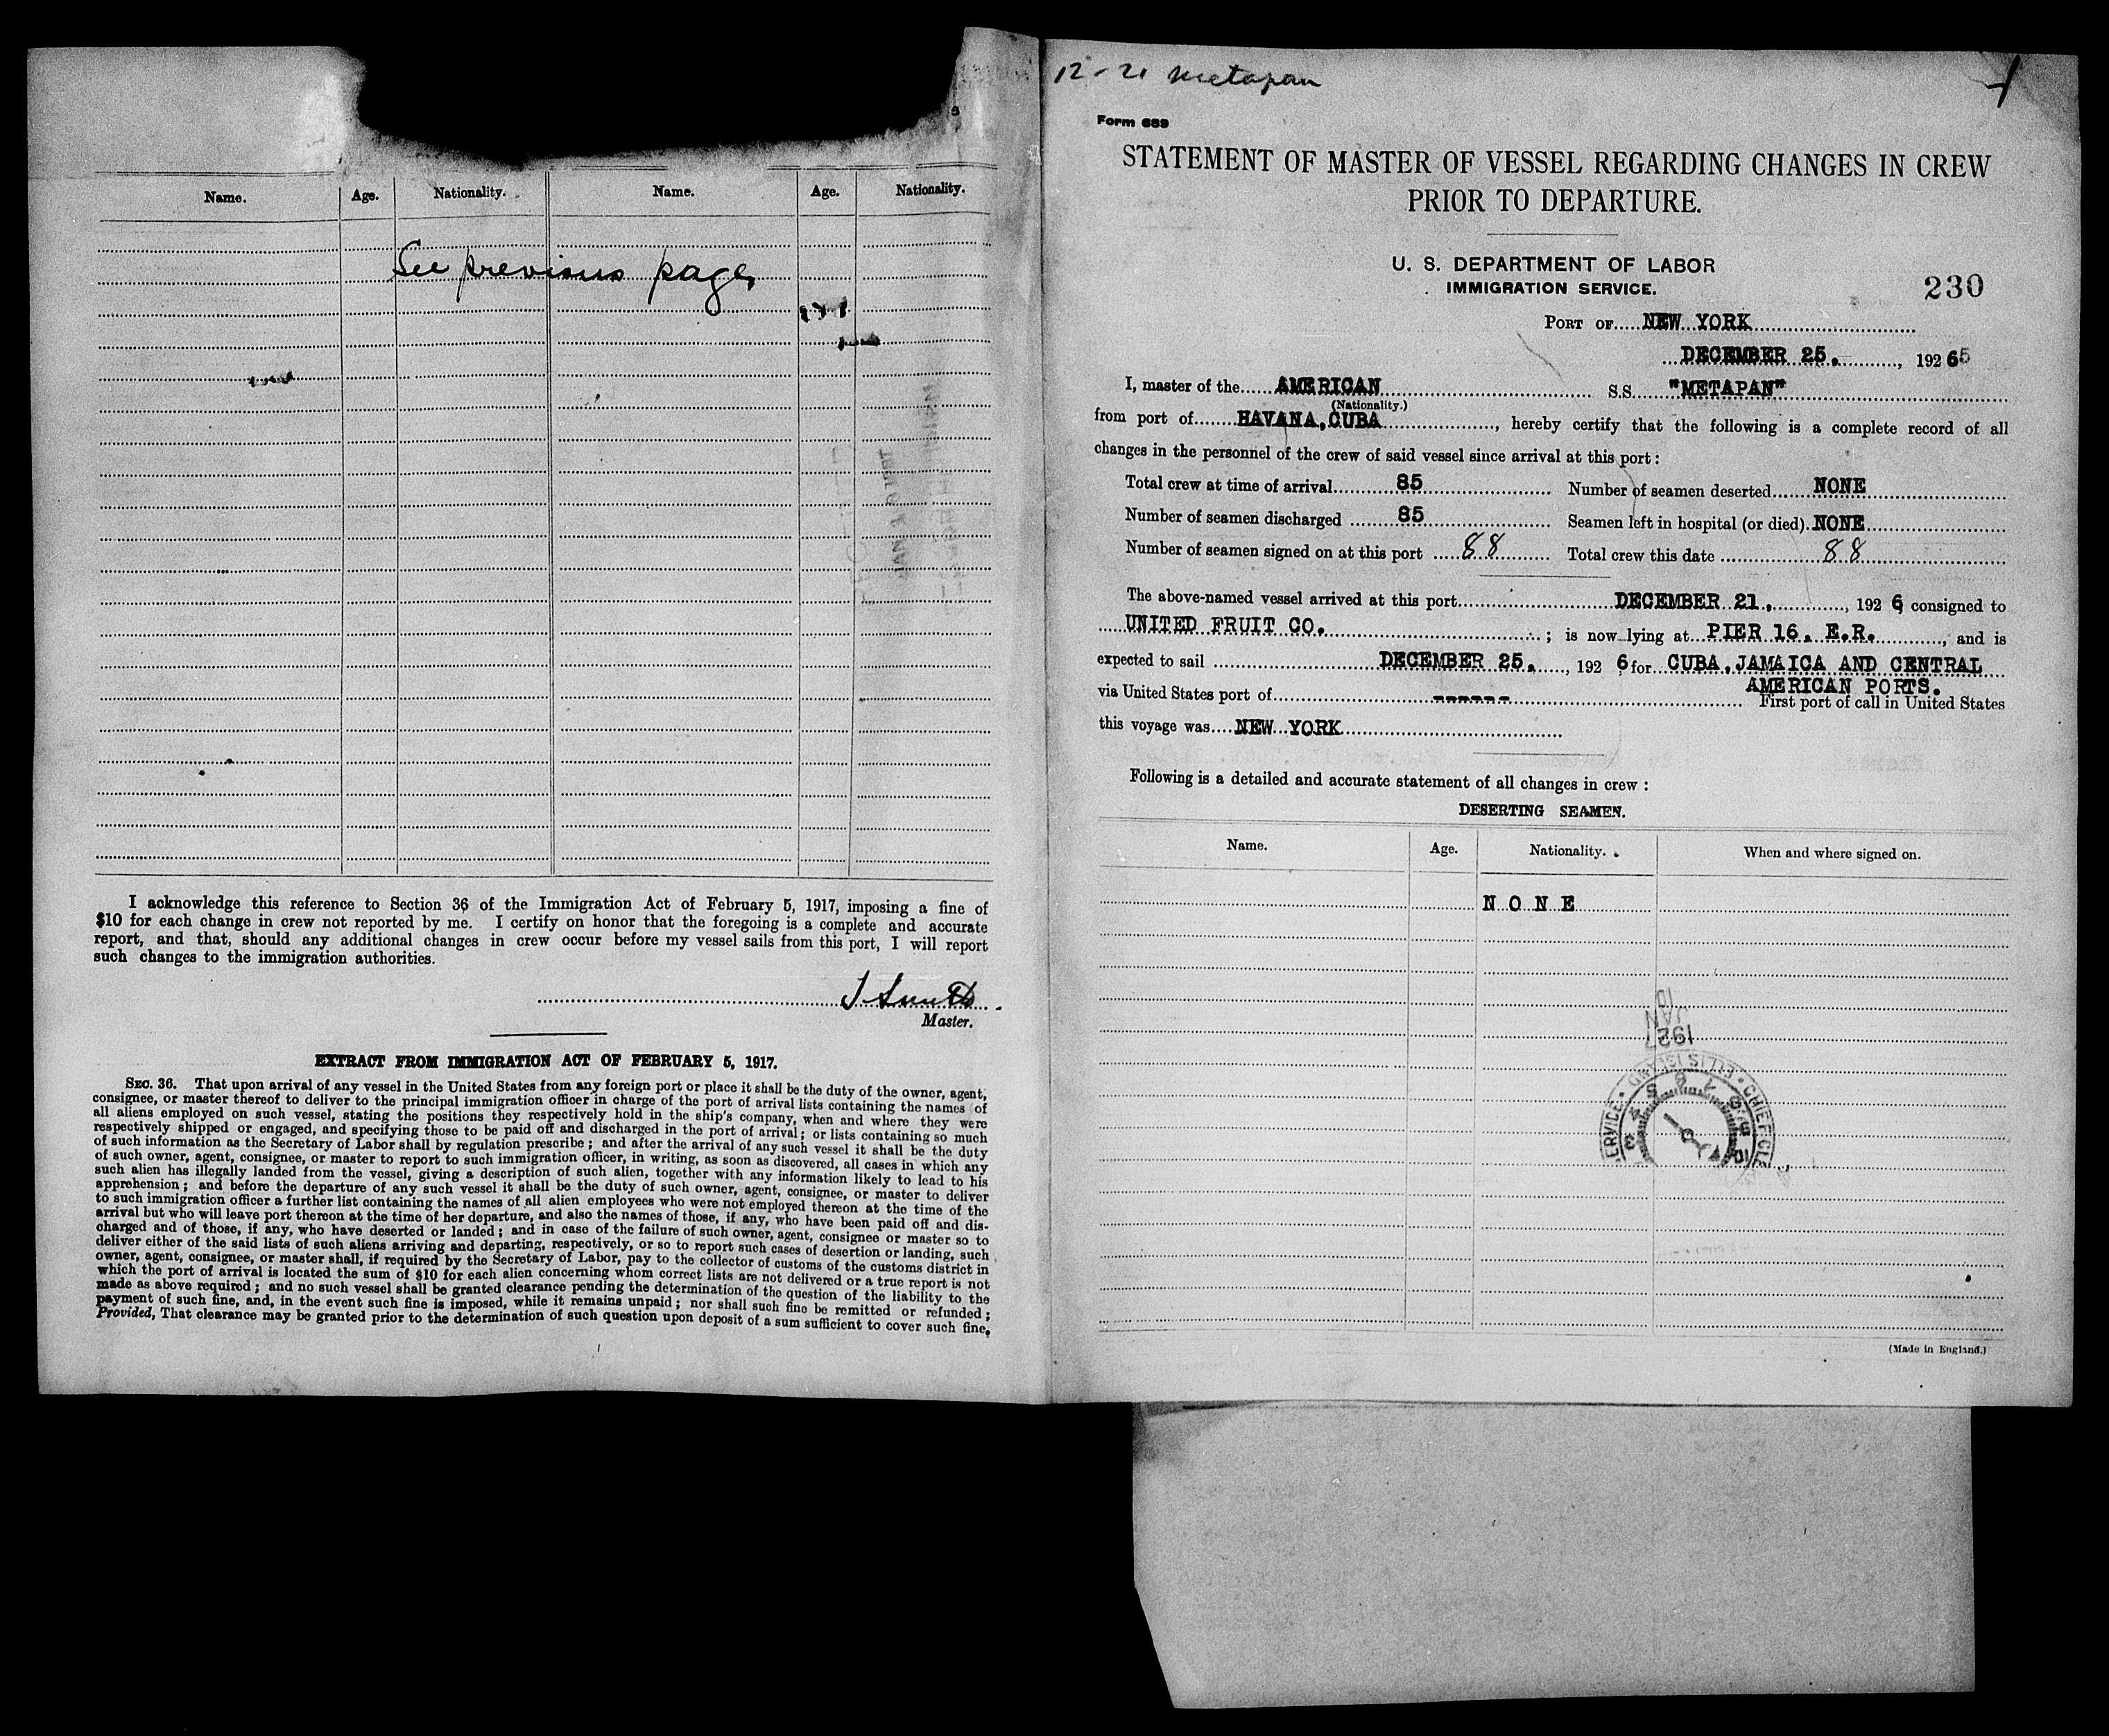 Name. Age. Nationality. Name. Age. Nationality.
See previous page,
I acknowledge this reference to Section 36 of the Immigration Act of February 5, 1917, imposing a fine of
$10 for each change in crew not reported by me. I certify on honor that the foregoing is a complete and accurate
report, and that, should any additional changes in crew occur before my vessel sails from this port, I will report
such changes to the immigration authorities.
J Smith
Master.
EXTRACT FROM IMMIGRATION ACT OF FEBRUARY 5, 1917.
SEC. 36. That upon arrival of any vessel in the United States from any foreign port or place it shall be the duty of the owner, agent,
consignee, or master thereof to deliver to the principal immigration officer in charge of the port of arrival lists containing the names of
all aliens employed on such vessel, stating the positions they respectively hold in the ship's company, when and where they were
respectively shipped or engaged, and specifying those to be paid off and discharged in the port of arrival; or lists containing so much
of such information as the Secretary of Labor shall by regulation prescribe; and after the arrival of any such vessel it shall be the duty
of such owner, agent, consignee, or master to report to such immigration officer, in writing, as soon as discovered, all cases in which any
such alien has illegally landed from the vessel, giving a description of such alien, together with any information likely to lead to his
apprehension; and before the departure of any such vessel it shall be the duty of such owner, agent, consignee, or master to deliver
to such immigration officer a further list containing the names of all alien employees who were not employed thereon at the time of the
arrival but who will leave port thereon at the time of her departure, and also the names of those, if any, who have been paid off and dis-
charged and of those, if any, who have deserted or landed; and in case of the failure of such owner, agent, consignee or master so to
deliver either of the said lists of such aliens arriving and departing, respectively, or so to report such cases of desertion or landing, such
owner, agent, consignee, or master shall, if required by the Secretary of Labor, pay to the collector of customs of the customs district in
which the port of arrival is located the sum of $10 for each alien concerning whom correct lists are not delivered or a true report is not
made as above required; and no such vessel shall be granted clearance pending the determination of the question of the liability to the
payment of such fine, and, in the event such fine is imposed, while it remains unpaid; nor shall such fine be remitted or refunded;
Provided, That clearance may be granted prior to the determination of such question upon deposit of a sum sufficient to cover such fine.
12-21 Metapan
Form 689
STATEMENT OF MASTER OF VESSEL REGARDING CHANGES IN CREW
PRIOR TO DEPARTURE.
U. S. DEPARTMENT OF LABOR
IMMIGRATION SERVICE.
230
PORT OF NEW YORK
DECEMBER 25. , 192 65
I, master of the AMERICAN S.S. "METAPAN"
(Nationality.)
from port of HAVANA,CUBA , hereby certify that the following is a complete record of all
changes in the personnel of the crew of said vessel since arrival at this port:
Total crew at time of arrival 85 Number of seamen deserted NONE
Number of seamen discharged 85 Seamen left in hospital (or died) NONE
Number of seamen signed on at this port 88 Total crew this date 88
The above-named vessel arrived at this port DECEMBER 21, , 192 6, consigned to
UNITED FRUIT CO. ; is now lying at PIER 16, E.R. , and is
expected to sail DECEMBER 25, , 192 6, for CUBA,JAMAICA AND CENTRAL
AMERICAN PORTS.
via United States port of ------ First port of call in United States
this voyage was NEW YORK
Following is a detailed and accurate statement of all changes in crew:
DESERTING SEAMEN.
Name. Age. Nationality. When and where signed on.
N O N E
10
JAN
1927
ELLIS ISLAND • CHIEF CLE
(Made in England.)